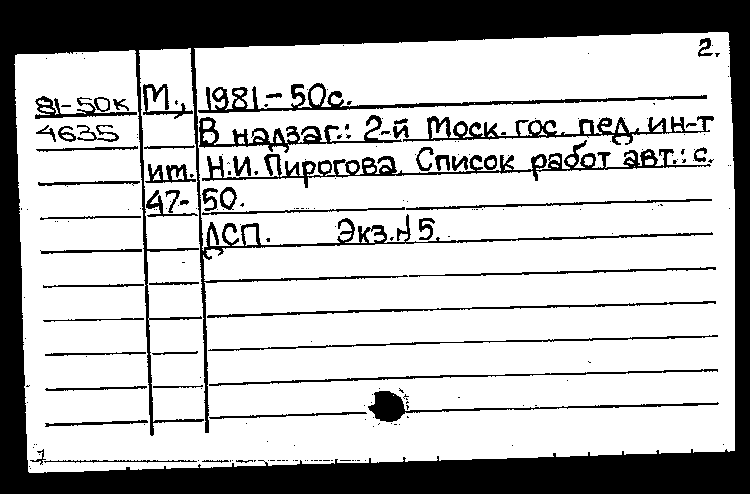 2.
81-50к М., 1981.- 50с.
4635 В надзаг.: 2-й Моск. гос. пед. ин-т
им. Н.И. Пирогова. Список работ авт.: с.
47- 50.
ДСП. Экз.№5.